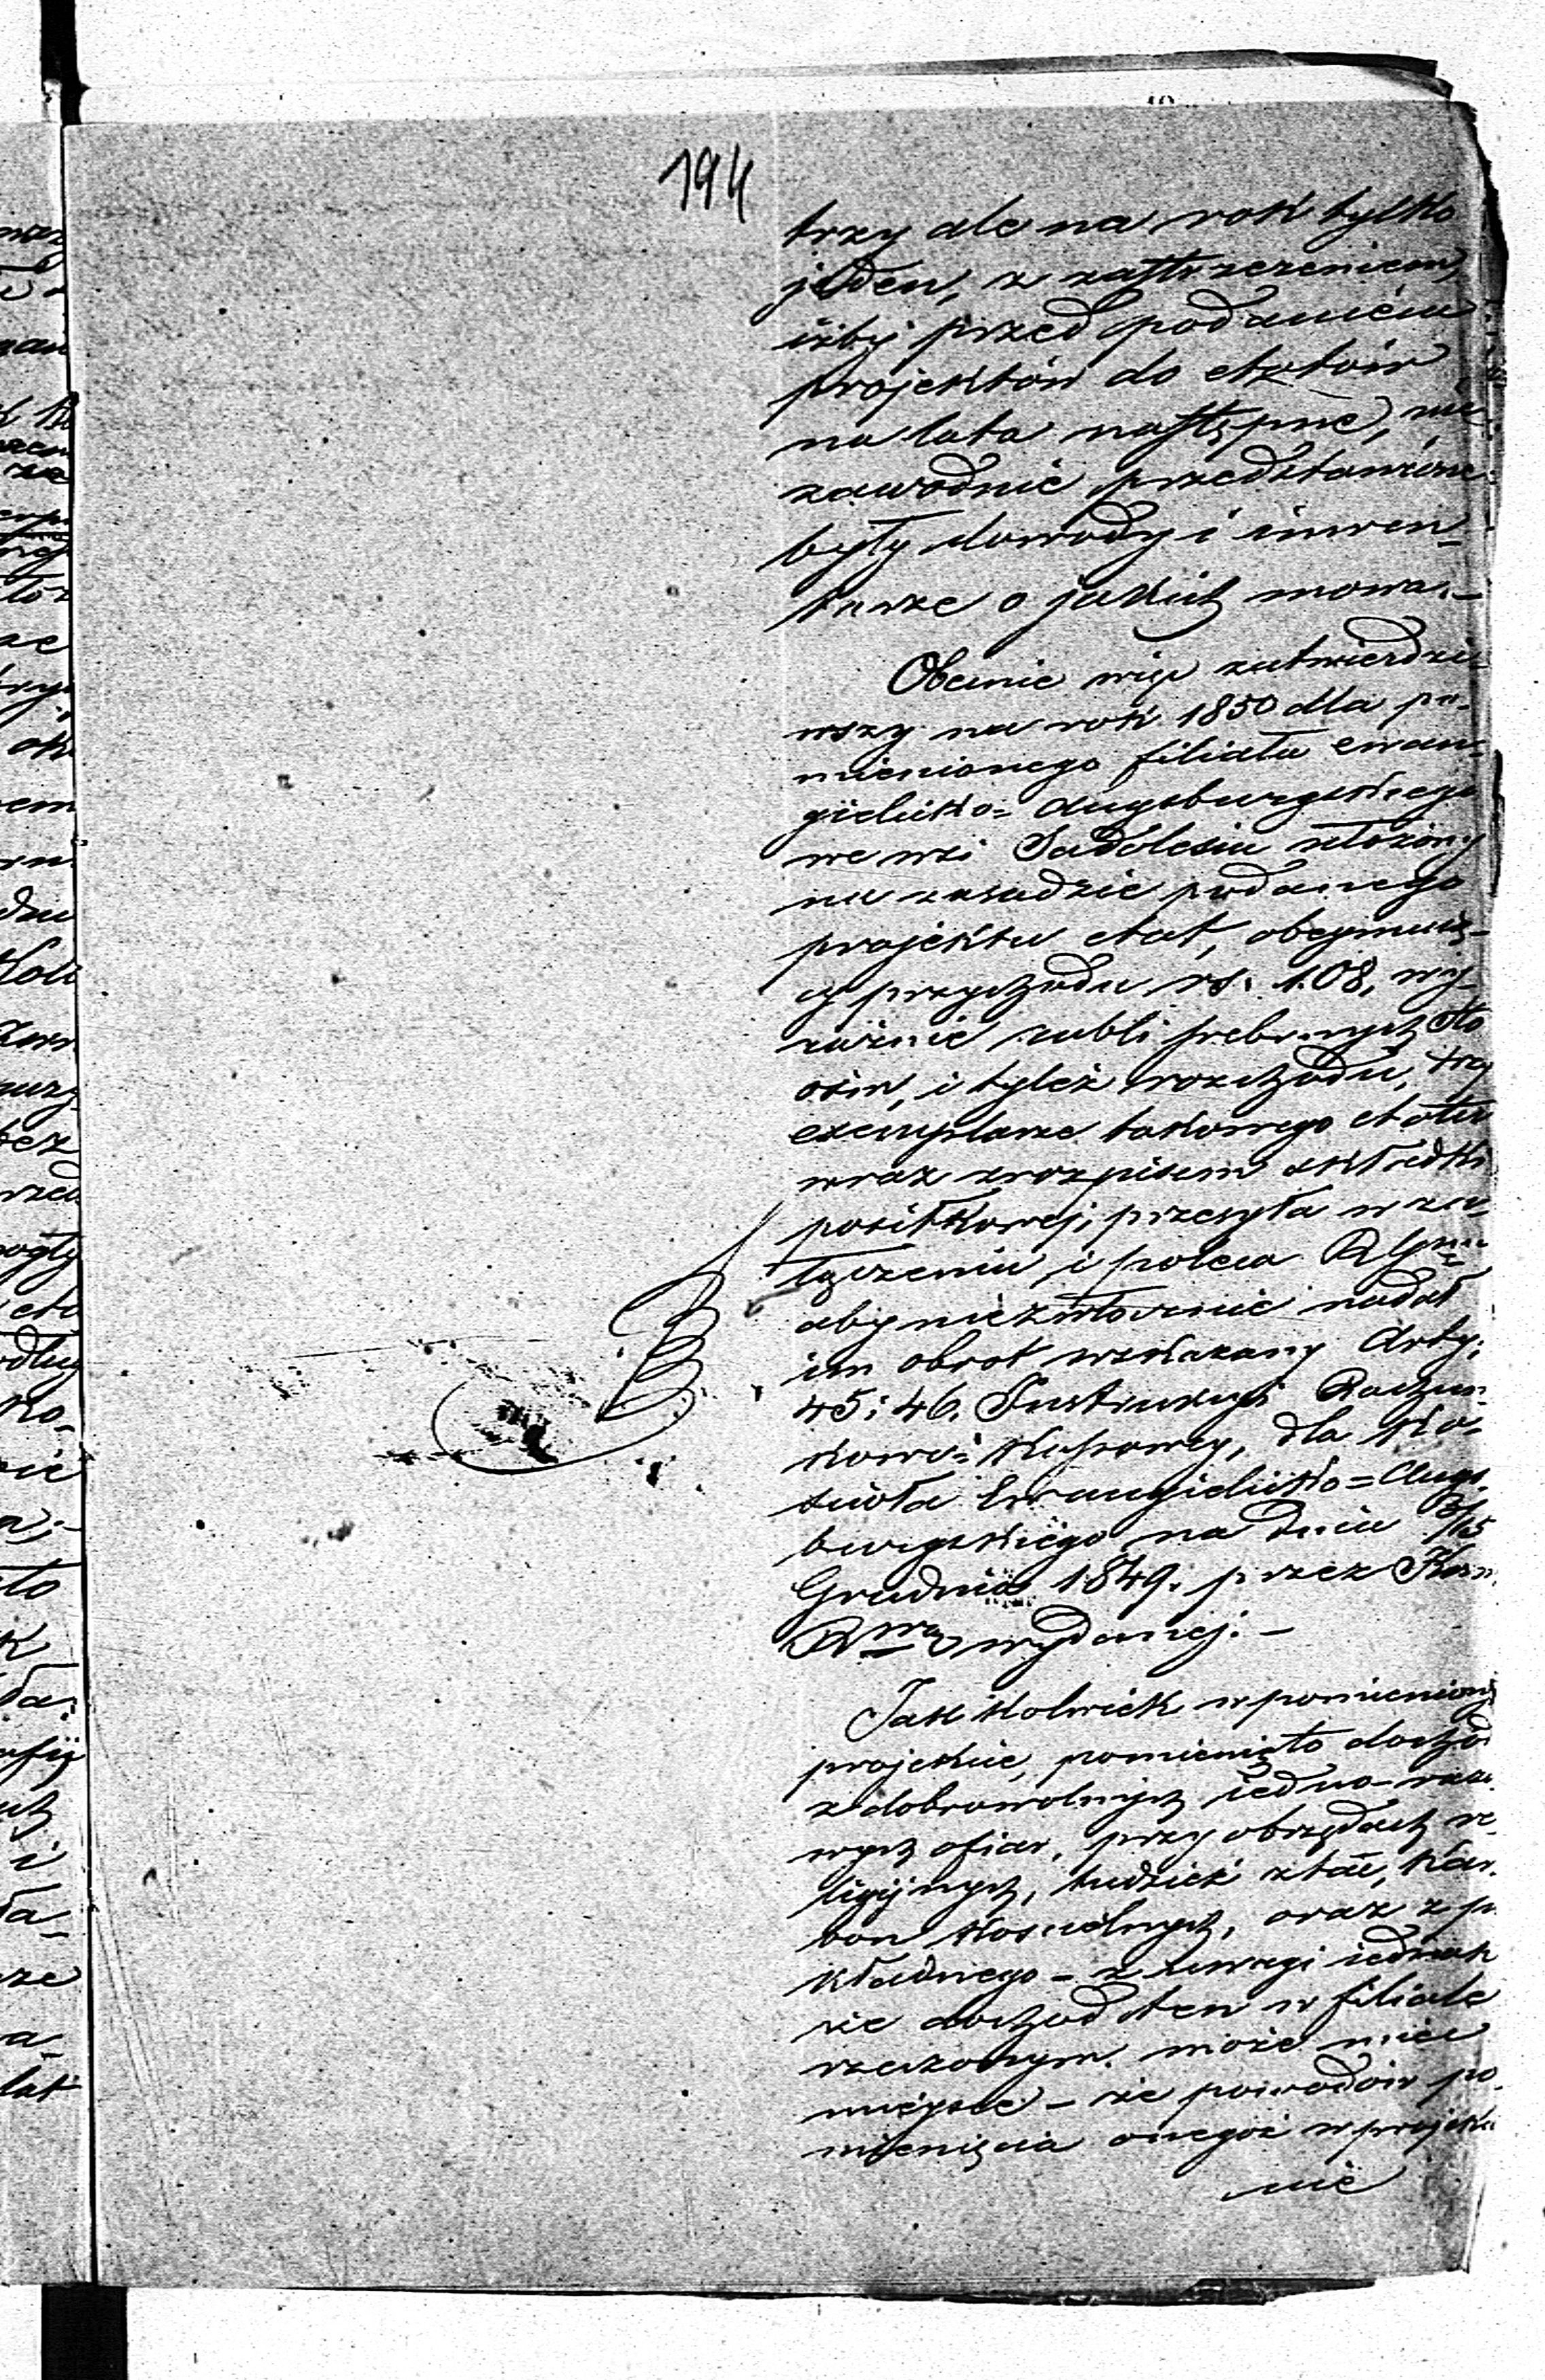 194
trzy ale na rok tylko
jeden, z zastrzeżeniem,
iżby przed podaniem
projektów do etatów
na lata następne, nie
zawodnie przedstawione
były dowody i inwen-
tarze o jakich mowa.-
Obecnie więc zatwierdzi-
wszy na rok 1850 dla po-
mienionego filiału ewan-
gielicko=Augsburgskiego
we wsi Sadolesiu ułożony
na zasadzie podanego
projektu etat, obejmują-
cy przychodu rs. 108, wy-
raźnie rubli srebrnych sto
ośm, i tyleż rozchodu, trzy
exemplarze takowego etatu
wraz z rozpisem składki
posiłkowej, przesyła w za-
łączeniu i poleca
aby niezwłocznie nadał
im obrót wskazany Arty:
45 i 46. Instrukcyi Rachun
kowo=Kassowey, dla Ko-
ścioła Ewangielicko=Augs
burgskiego na dniu 3/15
Grudnia 1849. przez Kom.
Rwą wydanej.-
Jakkolwiek w pomieniony
projekcie, pominięto dochód
z dobrowolnych iedno-razo
wych ofiar, przy obrzędach re-
ligijnych, tudzież z tac, kar-
bon kościelnych, oraz z po
kładnego - z uwagi iednak
że dochód ten w filiale
rzeczonym może mieć
mieysce - że powodów po-
minięcia onegoż w projek
nie